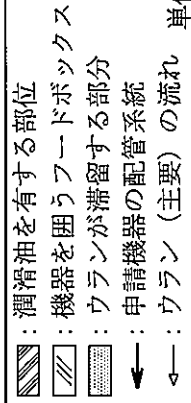 ：潤滑油を有する部位
：機器を囲うフードボックス
：ウランが滞留する部分
：申請機器の配管系統
：ウラン（主要）の流れ
単位